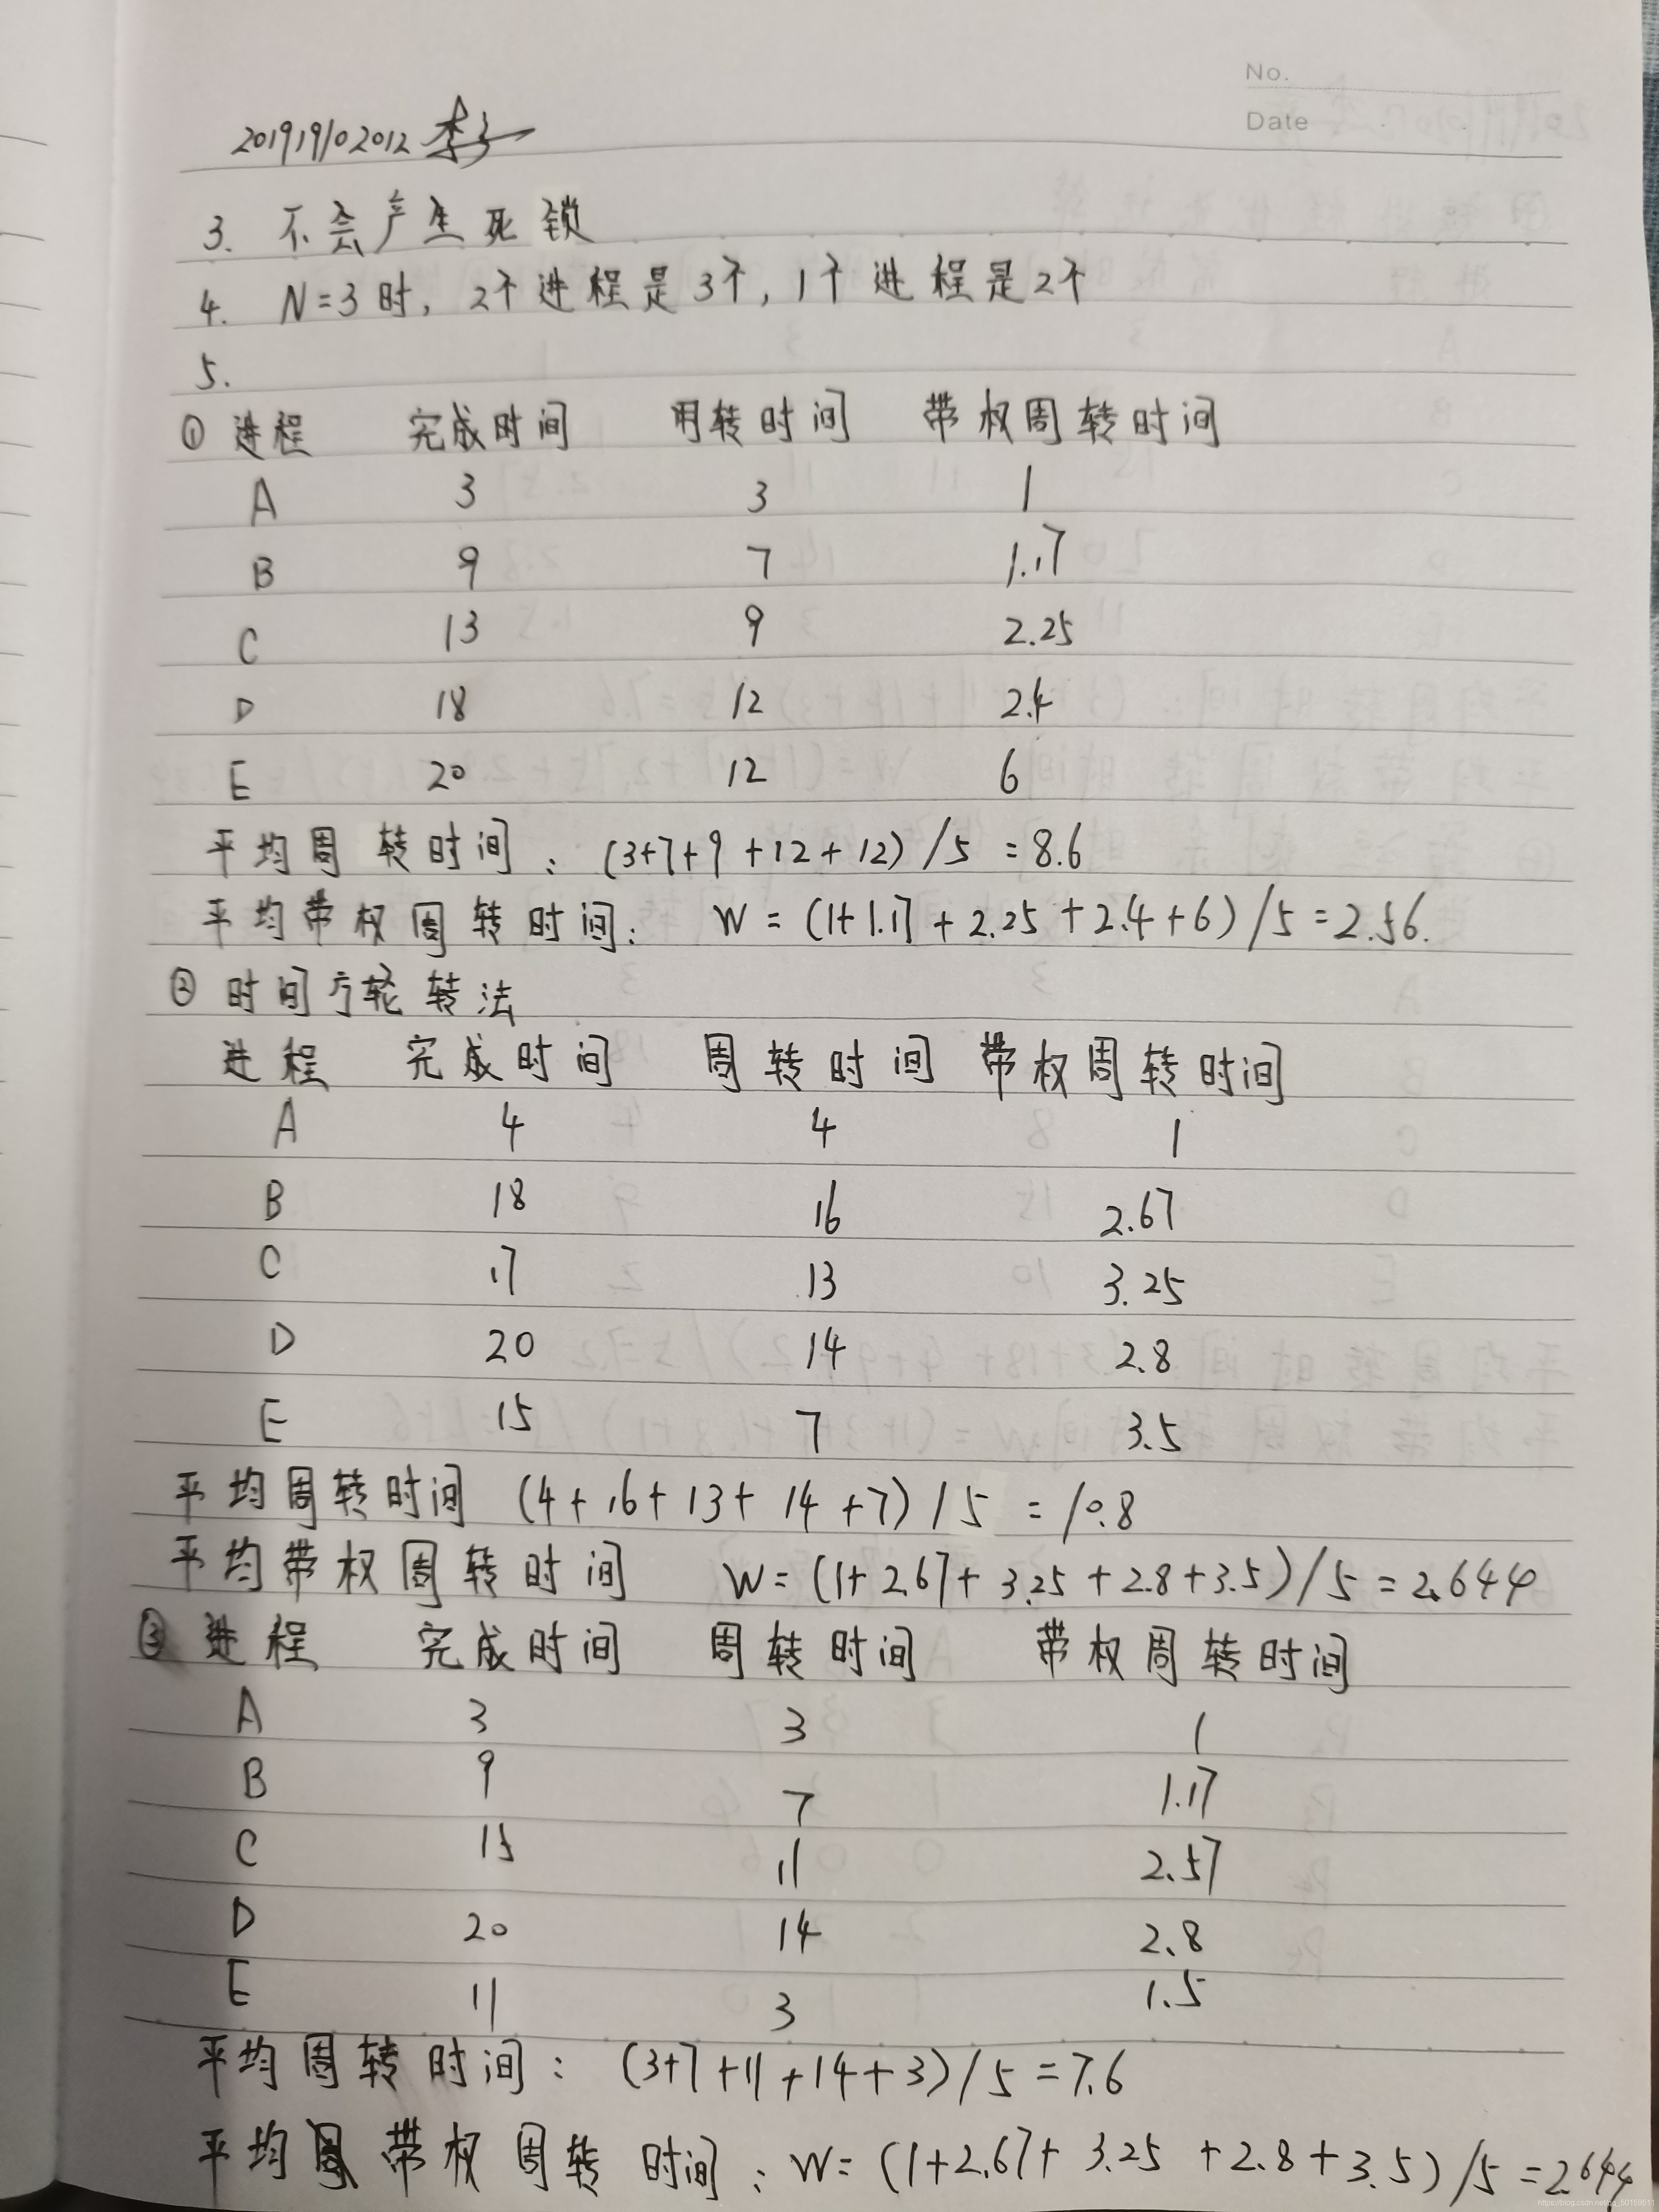 No.
Date
201919102012 李
3. 不会产生死锁
4. N=3时, 2个进程是3个, 1个进程是2个
5.
① 进程 完成时间 周转时间 带权周转时间
A 3 3 1
B 9 7 1.17
C 13 9 2.25
D 18 12 2.4
E 20 12 6
平均周转时间: (3+7+9+12+12)/5=8.6
平均带权周转时间: W=(1+1.17+2.25+2.4+6)/5=2.56.
② 时间片轮转法
进程 完成时间 周转时间 带权周转时间
A 4 4 1
B 18 16 2.67
C 17 13 3.25
D 20 14 2.8
E 15 7 3.5
平均周转时间 (4+16+13+14+7)/5=10.8
平均带权周转时间 W=(1+2.67+3.25+2.8+3.5)/5=2.644
③ 进程 完成时间 周转时间 带权周转时间
A 3 3 1
B 9 7 1.17
C 15 11 2.57
D 20 14 2.8
E 11 3 1.5
平均周转时间: (3+7+11+14+3)/5=7.6
平均带权周转时间: W=(1+2.67+3.25+2.8+3.5)/5=2.644